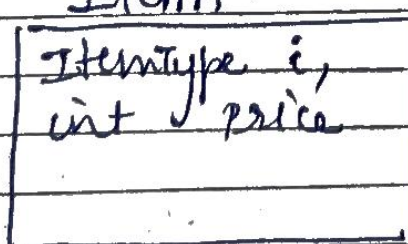 ItemType i,
int price